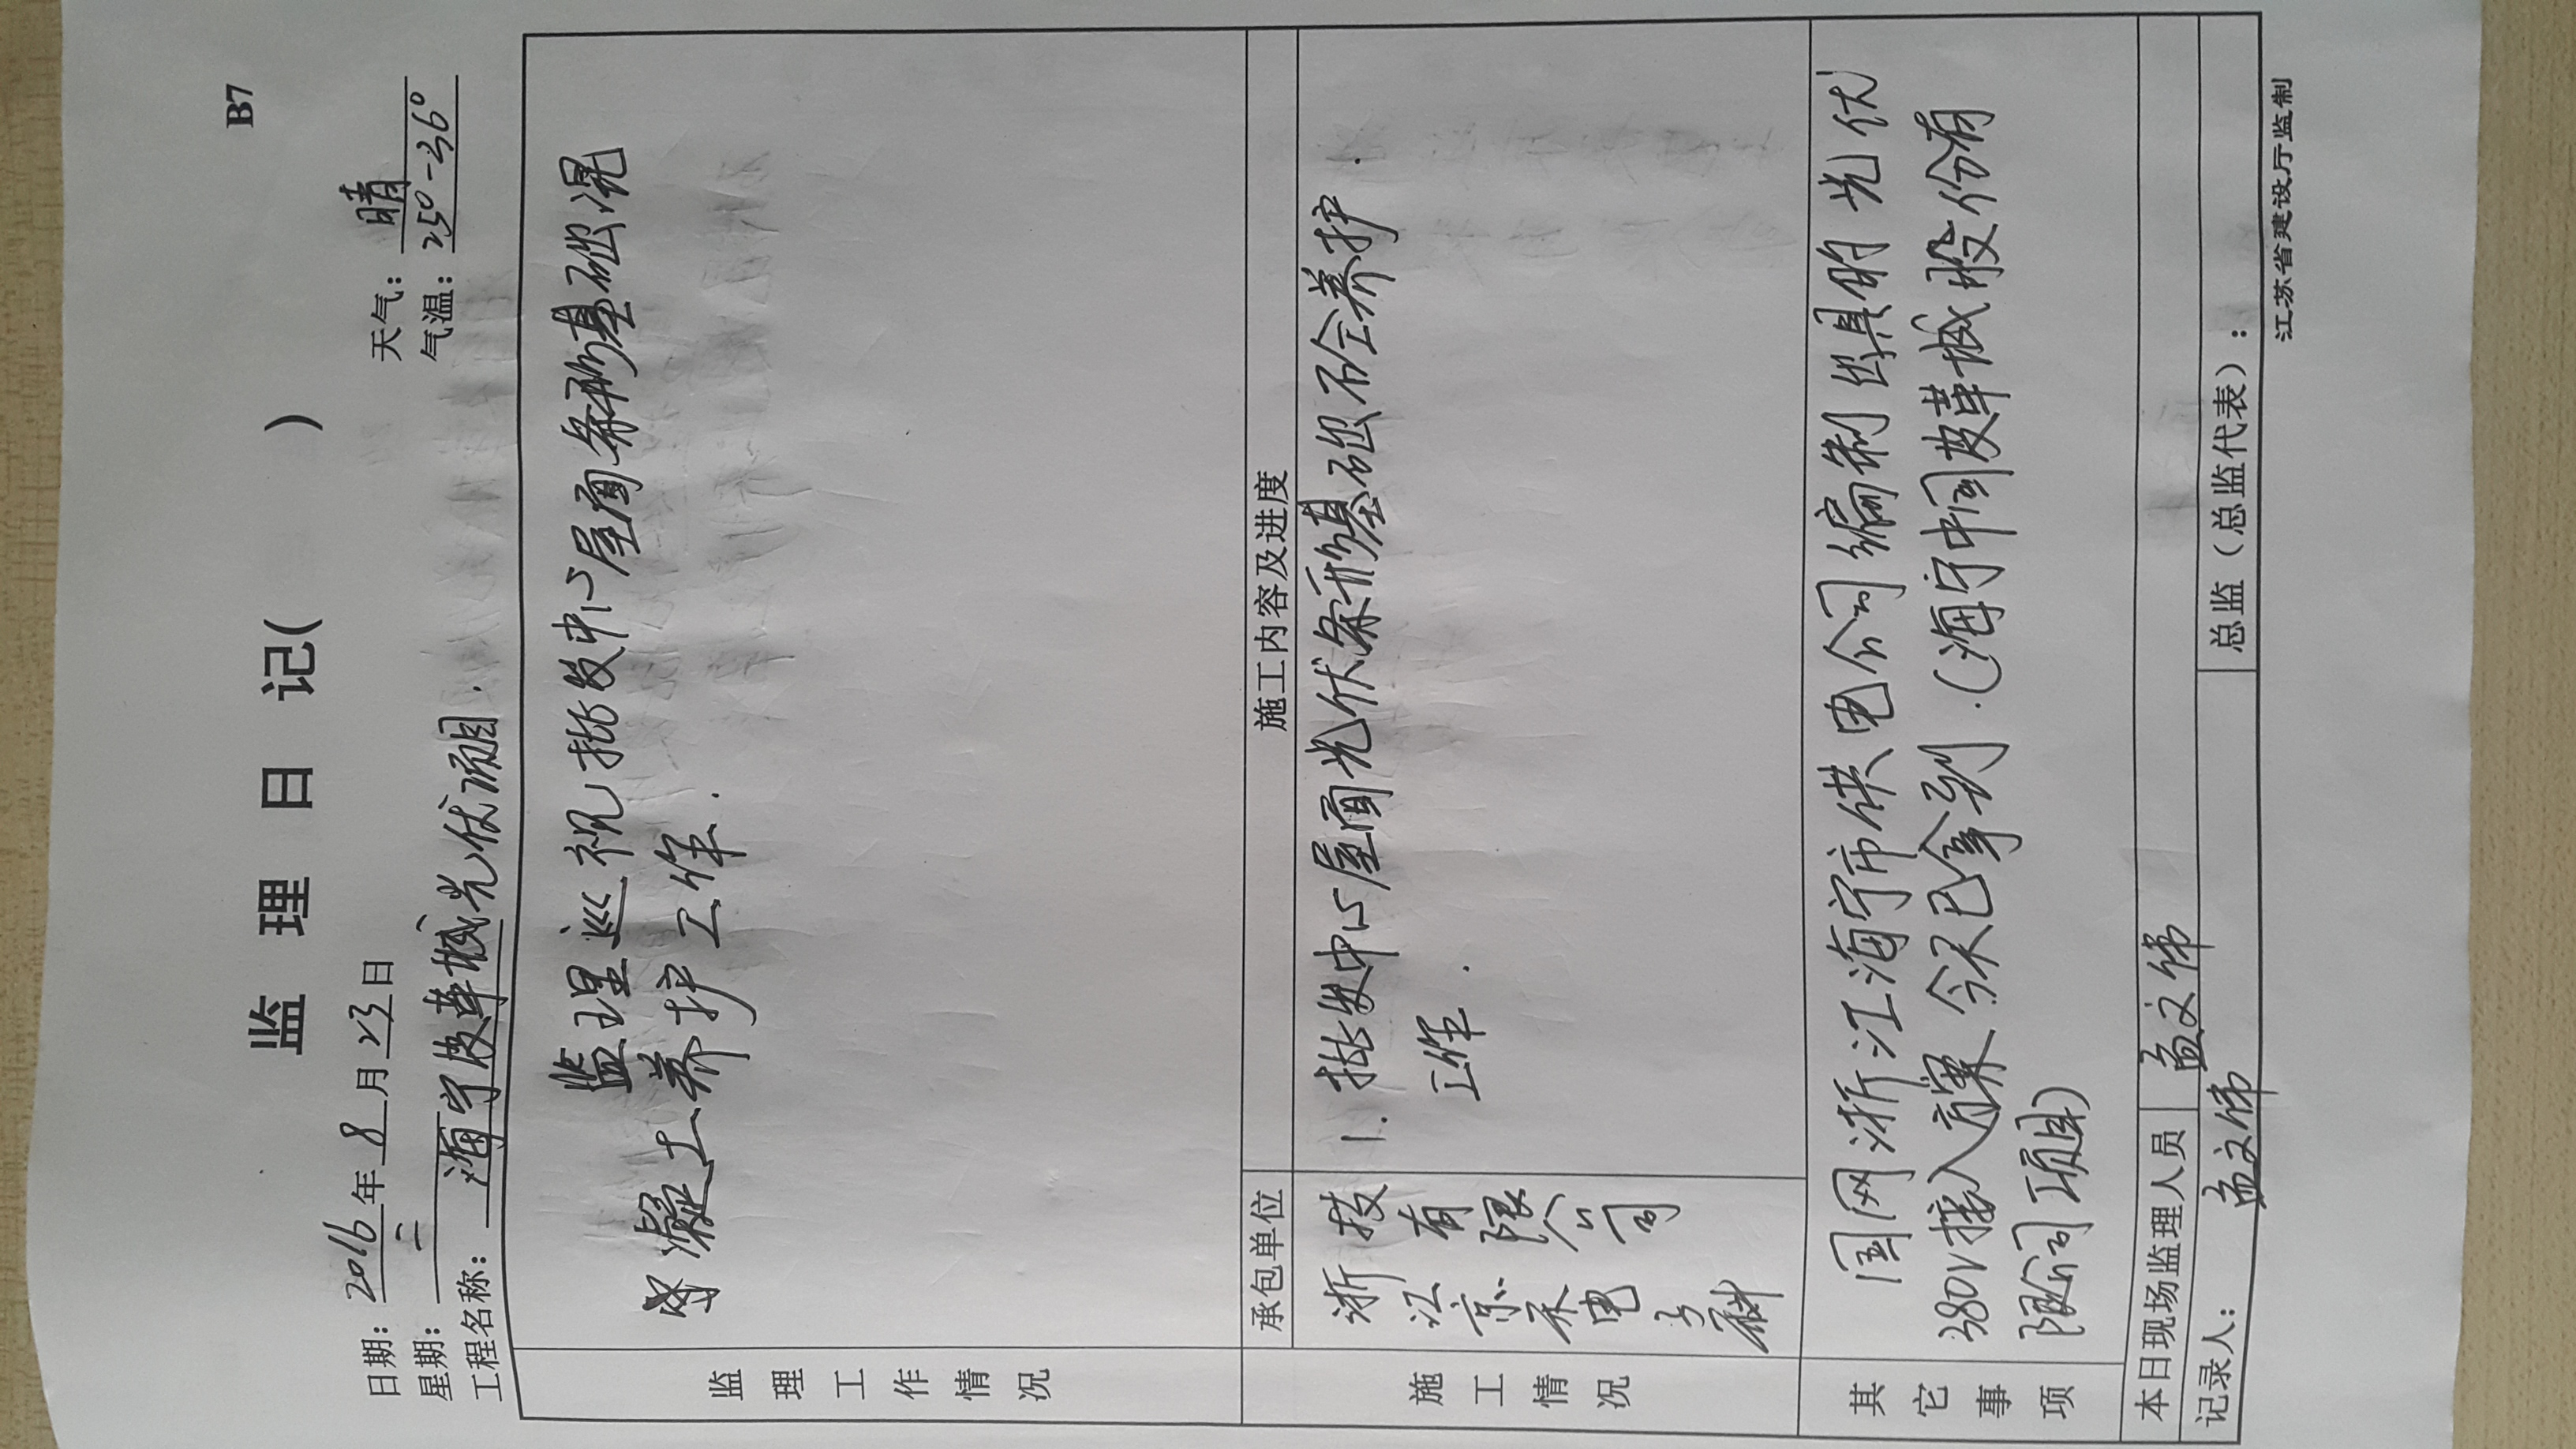 B7
监 理 日 记( )
日期: 2016 年 8 月 23 日 天气: 晴
星期: 二 气温: 25°-36°
工程名称: 海宁皮革城光伏项目.
监理工作情况
监理巡视批发中心屋面条形基础混
凝土养护工作.
承包单位 施工内容及进度
施工情况
浙江京禾电子科
技有限公司
1. 批发中心屋面光伏条形基础砼养护
工作.
其它事项
国网浙江海宁市供电公司编制出具的光伏
380V接入方案今天已拿到.(海宁中国皮革城股份有
限公司项目)
本日现场监理人员 孟文伟
记录人: 孟文伟 总监(总监代表):
江苏省建设厅监制